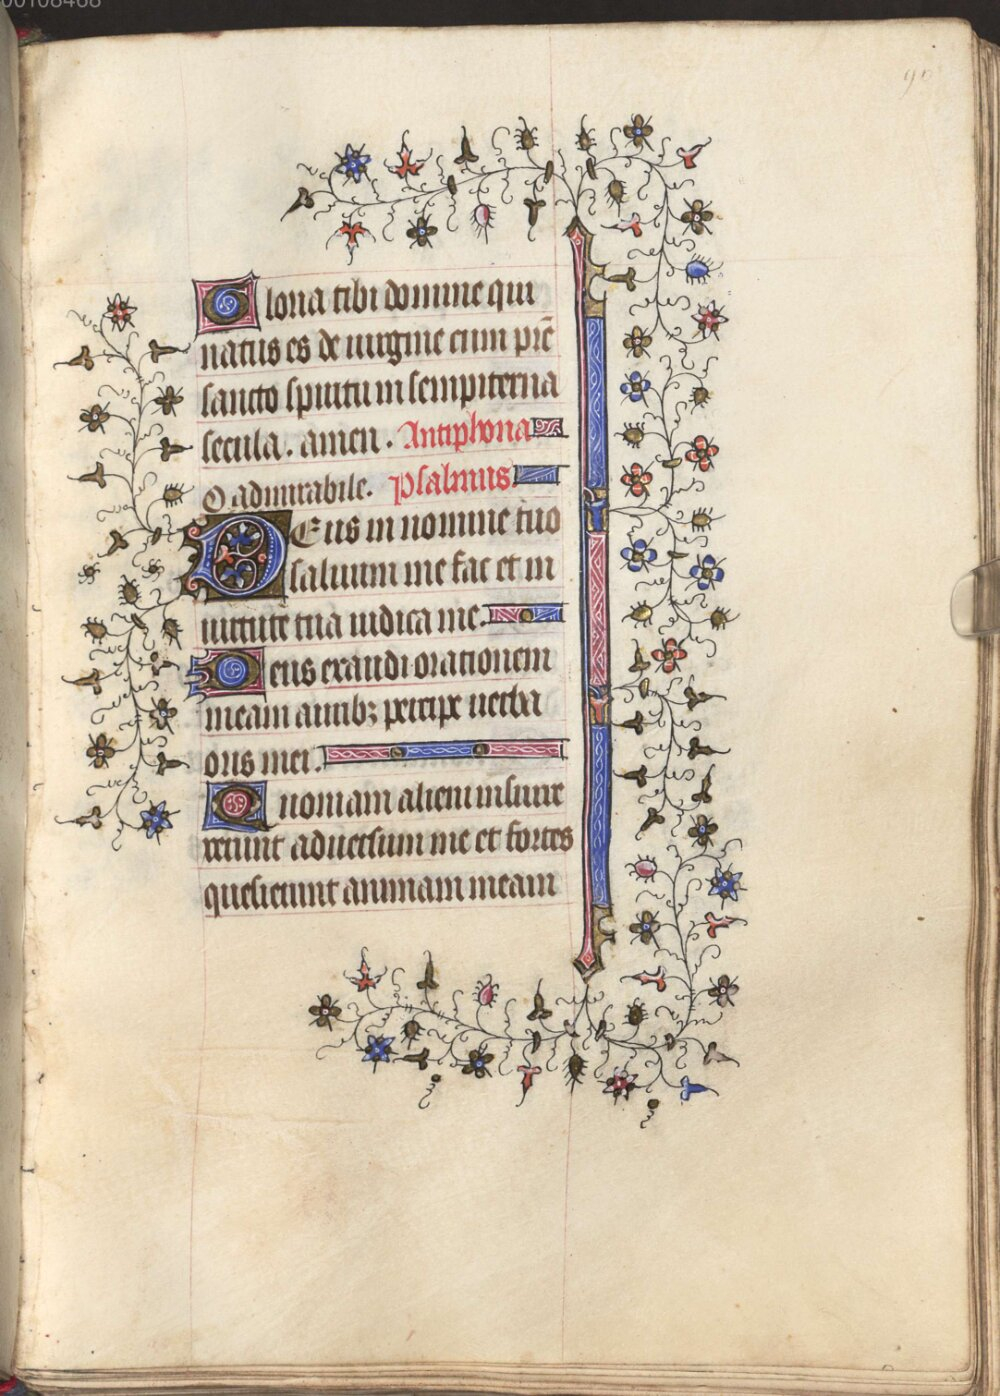 00108468
90
Gloria tibi domine qui
natus es de uirgine cum pr̄e
sancto spiritu in sempiterna
secula. amen. Antiphona
O admirabile. Psalmus
Deus in nomine tuo
saluum me fac et in
uirtute tua iudica me.
Deus exaudi orationem
meam auribꝫ percipe uerba
oris mei.
Quoniam alieni insurre
xerunt aduersum me et fortes
quesierunt animam meam